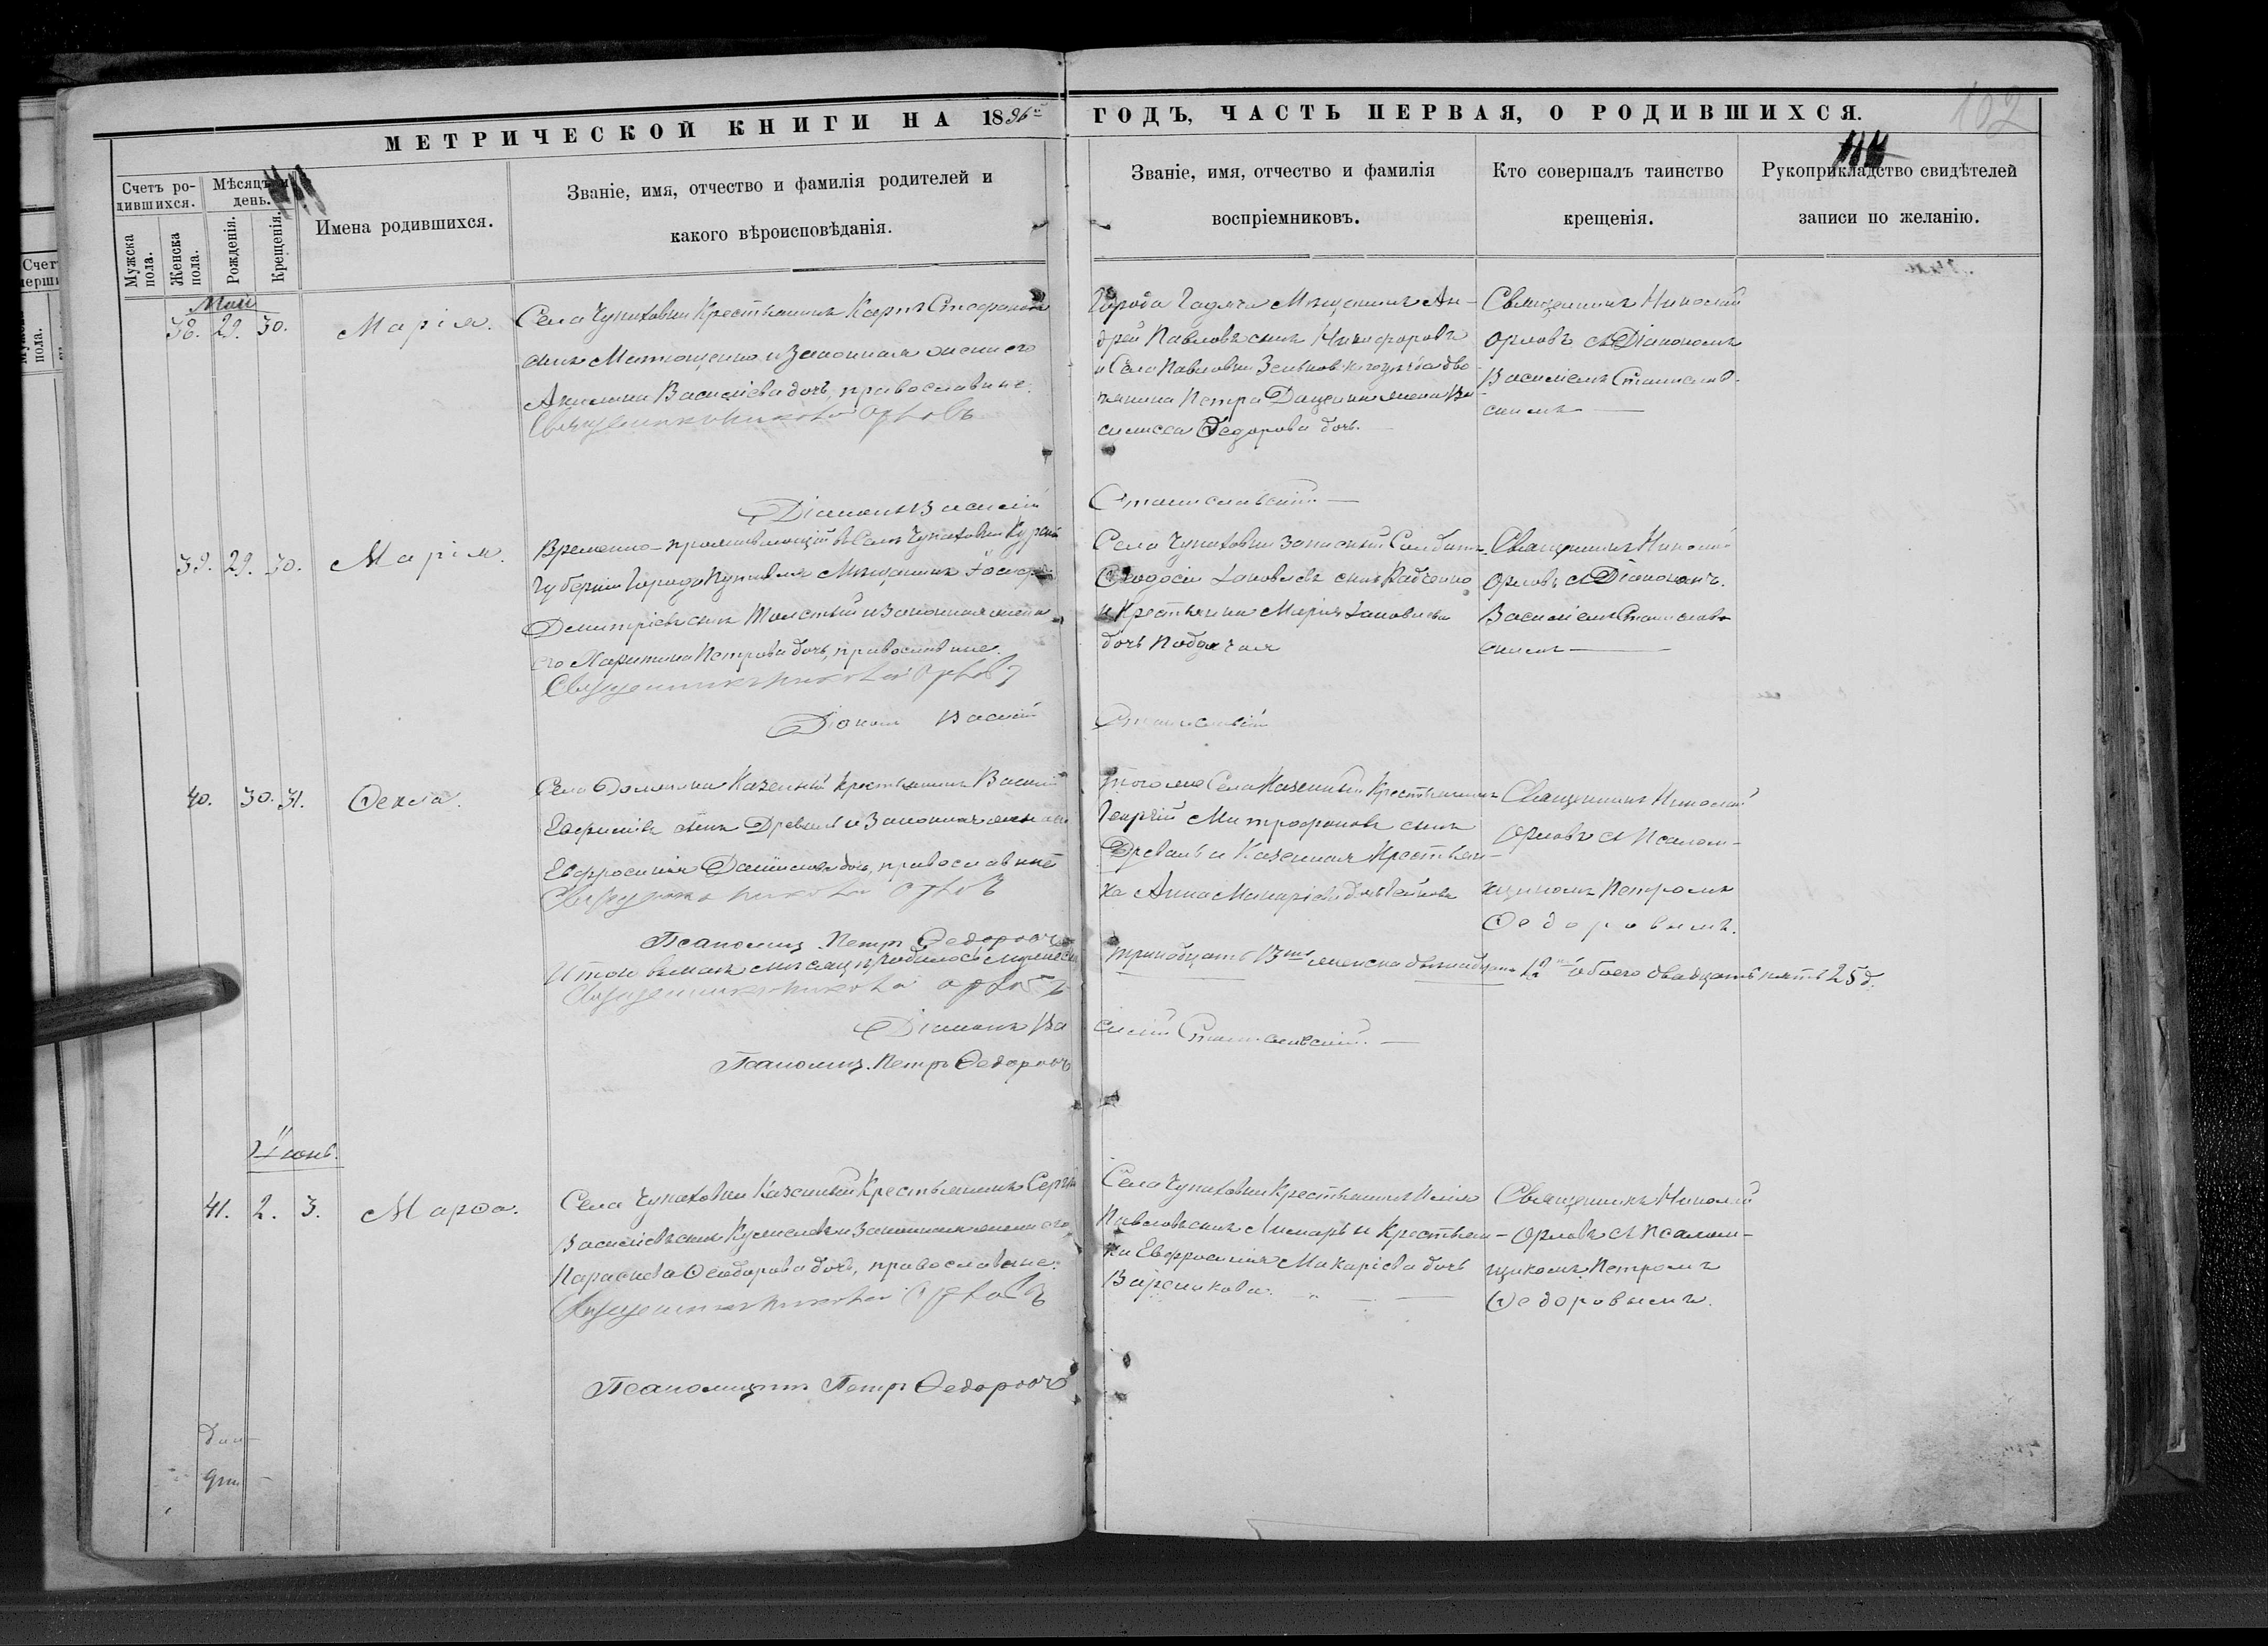 МЕТРИЧЕСКОЙ КНИГИ НА 1896й ГОДЪ, ЧАСТЬ ПЕРВАЯ, О РОДИВШИХСЯ.
102
Счетъ родившихся.
Мѣсяцъ и день.
Мужска пола.
Женска пола.
Рожденія.
Крещенія.
Имена родившихся.
Званіе, имя, отчество и фамилія родителей и
какого вѣроисповѣданія.
Званіе, имя, отчество и фамилія
воспріемниковъ.
Кто совершалъ таинство
крещенія.
Рукоприкладство свидѣтелей
записи по желанію.
Май
38. 29. 30.
Марія.
Села Чупаховки Крестьянинъ Карпъ Стефановъ
сынъ Матющенко и Законная жена его
Акилина Василіева дочь, православные.
Священникъ Николай Орловъ
Діаконъ Василій Станиславскій
Города Гадяча Мѣщанинъ Ан-
дрей Павловъ сынъ Никифоровъ
и Села Павловки Зеньков.
Петра Даценка жена Ва
силисса Ѳедорова дочь.
Священникъ Николай
Орловъ съ Діакономъ
Василіемъ Станислав-
скимъ
39. 29. 30.
Марія.
Временно-проживающій въ Селѣ Чупаховки Курской
Губерніи Города Путивля Мѣщанинъ
Димитріевъ сынъ Толстый и Законная жена
его Харитина Петрова дочь, православные.
Священникъ Николай Орловъ
Діаконъ Василій Станиславскій
Села Чупаховки запасный Солдатъ
Ѳеодосій Іаковлевъ сынъ Радченко
и Крестьянка Марія Іаковлева
дочь
Священникъ Николай
Орловъ съ Діакономъ
Василіемъ Станислав-
скимъ
40. 30. 31.
Ѳекла.
Села Должика Казенный крестьянинъ Василій
сынъ Древаль и Законная жена его
Евфросинія Даніилова дочь, православные
Священникъ Николай Орловъ
Псаломщ. Петръ Ѳедоровъ
того же Села Казенный Крестьянинъ
Георгій Митрофановъ сынъ
Древаль и Казенная Крестьян-
ка Анна Макаріева дочь
Священникъ Николай
Орловъ съ Псалом-
щикомъ Петромъ
Ѳедоровымъ.
Итого въ маѣ мѣсяцѣ родилось мужеска тринадцать 13ть женска двѣнадцать 12 обоего двадцать пять 25 д.
Священникъ Николай Орловъ
Діаконъ Василій Станиславскій
Псаломщ. Петръ Ѳедоровъ
Іюнь.
41. 2. 3.
Марѳа.
Села Чупаховки Казенный Крестьянинъ Сергій
Василіевъ сынъ и Законная жена его
Параскева Ѳеодорова дочь, православные.
Священникъ Николай Орловъ
Псаломщикъ Петръ Ѳедоровъ
Села Чупаховки Крестьянинъ Илія
Павловъ сынъ Лимарь и Крестьян-
ка Евфросинія Макаріева дочь
Вареникова.
Священникъ Николай
Орловъ съ Псалом-
щикомъ Петромъ
Ѳедоровымъ.